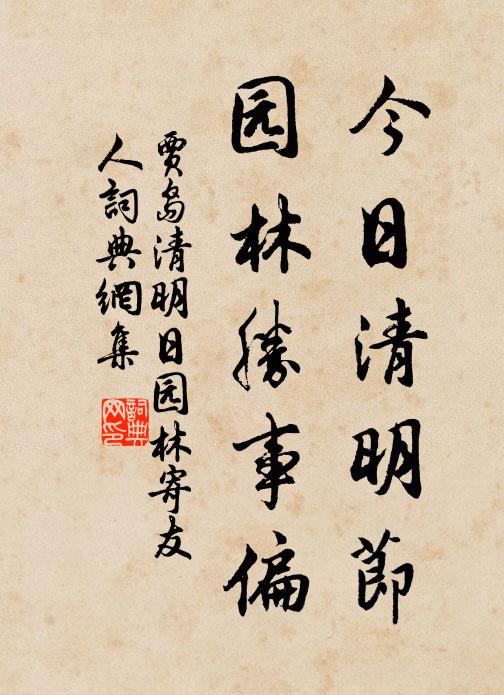 今日清明節
园林勝事偏
賈島清明日园林寄友
人詞典網集
詞典
网印